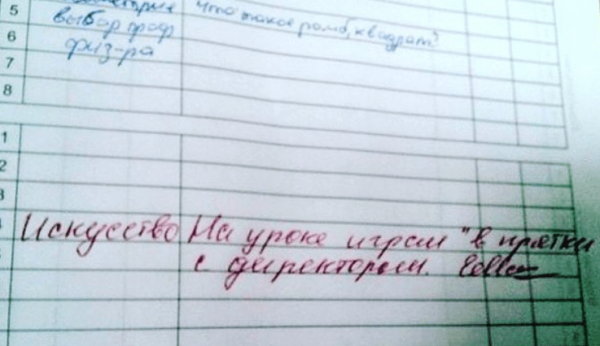 5 что такое ромб, квадрат?
6 выбор проф
7 физ-ра
8
1
2
3
Искусство На уроке играл "в прятки
с директором.